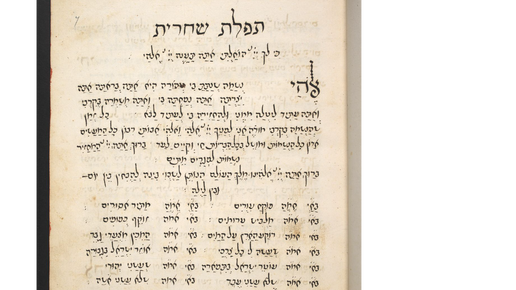 תפלת שחרית
כי לך יי הוחלתי אתה תענה יי אלהי
אלהי
נשמה שנתת בי טהורה היא אתה בראתה אתה
יצרתה אתה נפחתה בי ואתה משמרה בקרבי
ואתה עתיד לטלה ממני ולהחזירה בי לעתיד לבא כל זמן
שהנשמה בקרבי מודה אני לפניך יי אלהי ואלהי אבותי רבון כל המעשים
אדון כל הנשמות ומושל בכל הבריות וקיים לעד ברוך אתה יי המחזיר
נשמות לפגרים מתים
ברוך אתה יי אלהינו מלך העולם הנותן לשכוי בינה להבחין בין יום
ובין לילה
באי אמה פוקח עורים באי אמה מתיר אסורים
באי אמה מלביש ערומים באי אמה זוקף כפופים
באי אמה רוקע הארץ על המים באי אמה המכין מצעדי גבר
באי אמה שעשה לי כל צרכי באי אמה אוזר ישראל בגבורה
באי אמה עוטר ישראל בתפארה באי אמה שעשני יהודי
באי אמה שלא עשני עבד באי אמה שלא עשני אשה